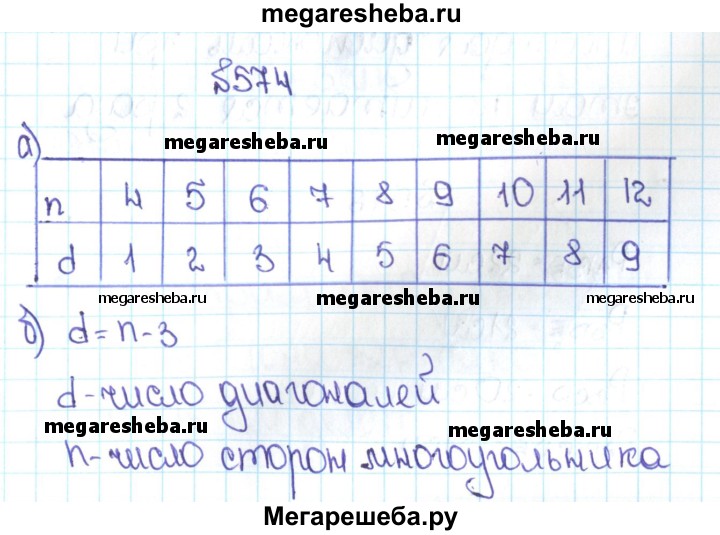 megaresheba.ru
№574
а)
megaresheba.ru megaresheba.ru
n 4 5 6 7 8 9 10 11 12
d 1 2 3 4 5 6 7 8 9
megaresheba.ru megaresheba.ru megaresheba.ru
б) d = n - 3
d - число диагоналей
megaresheba.ru megaresheba.ru
n - число сторон многоугольника
Мегарешеба.ру